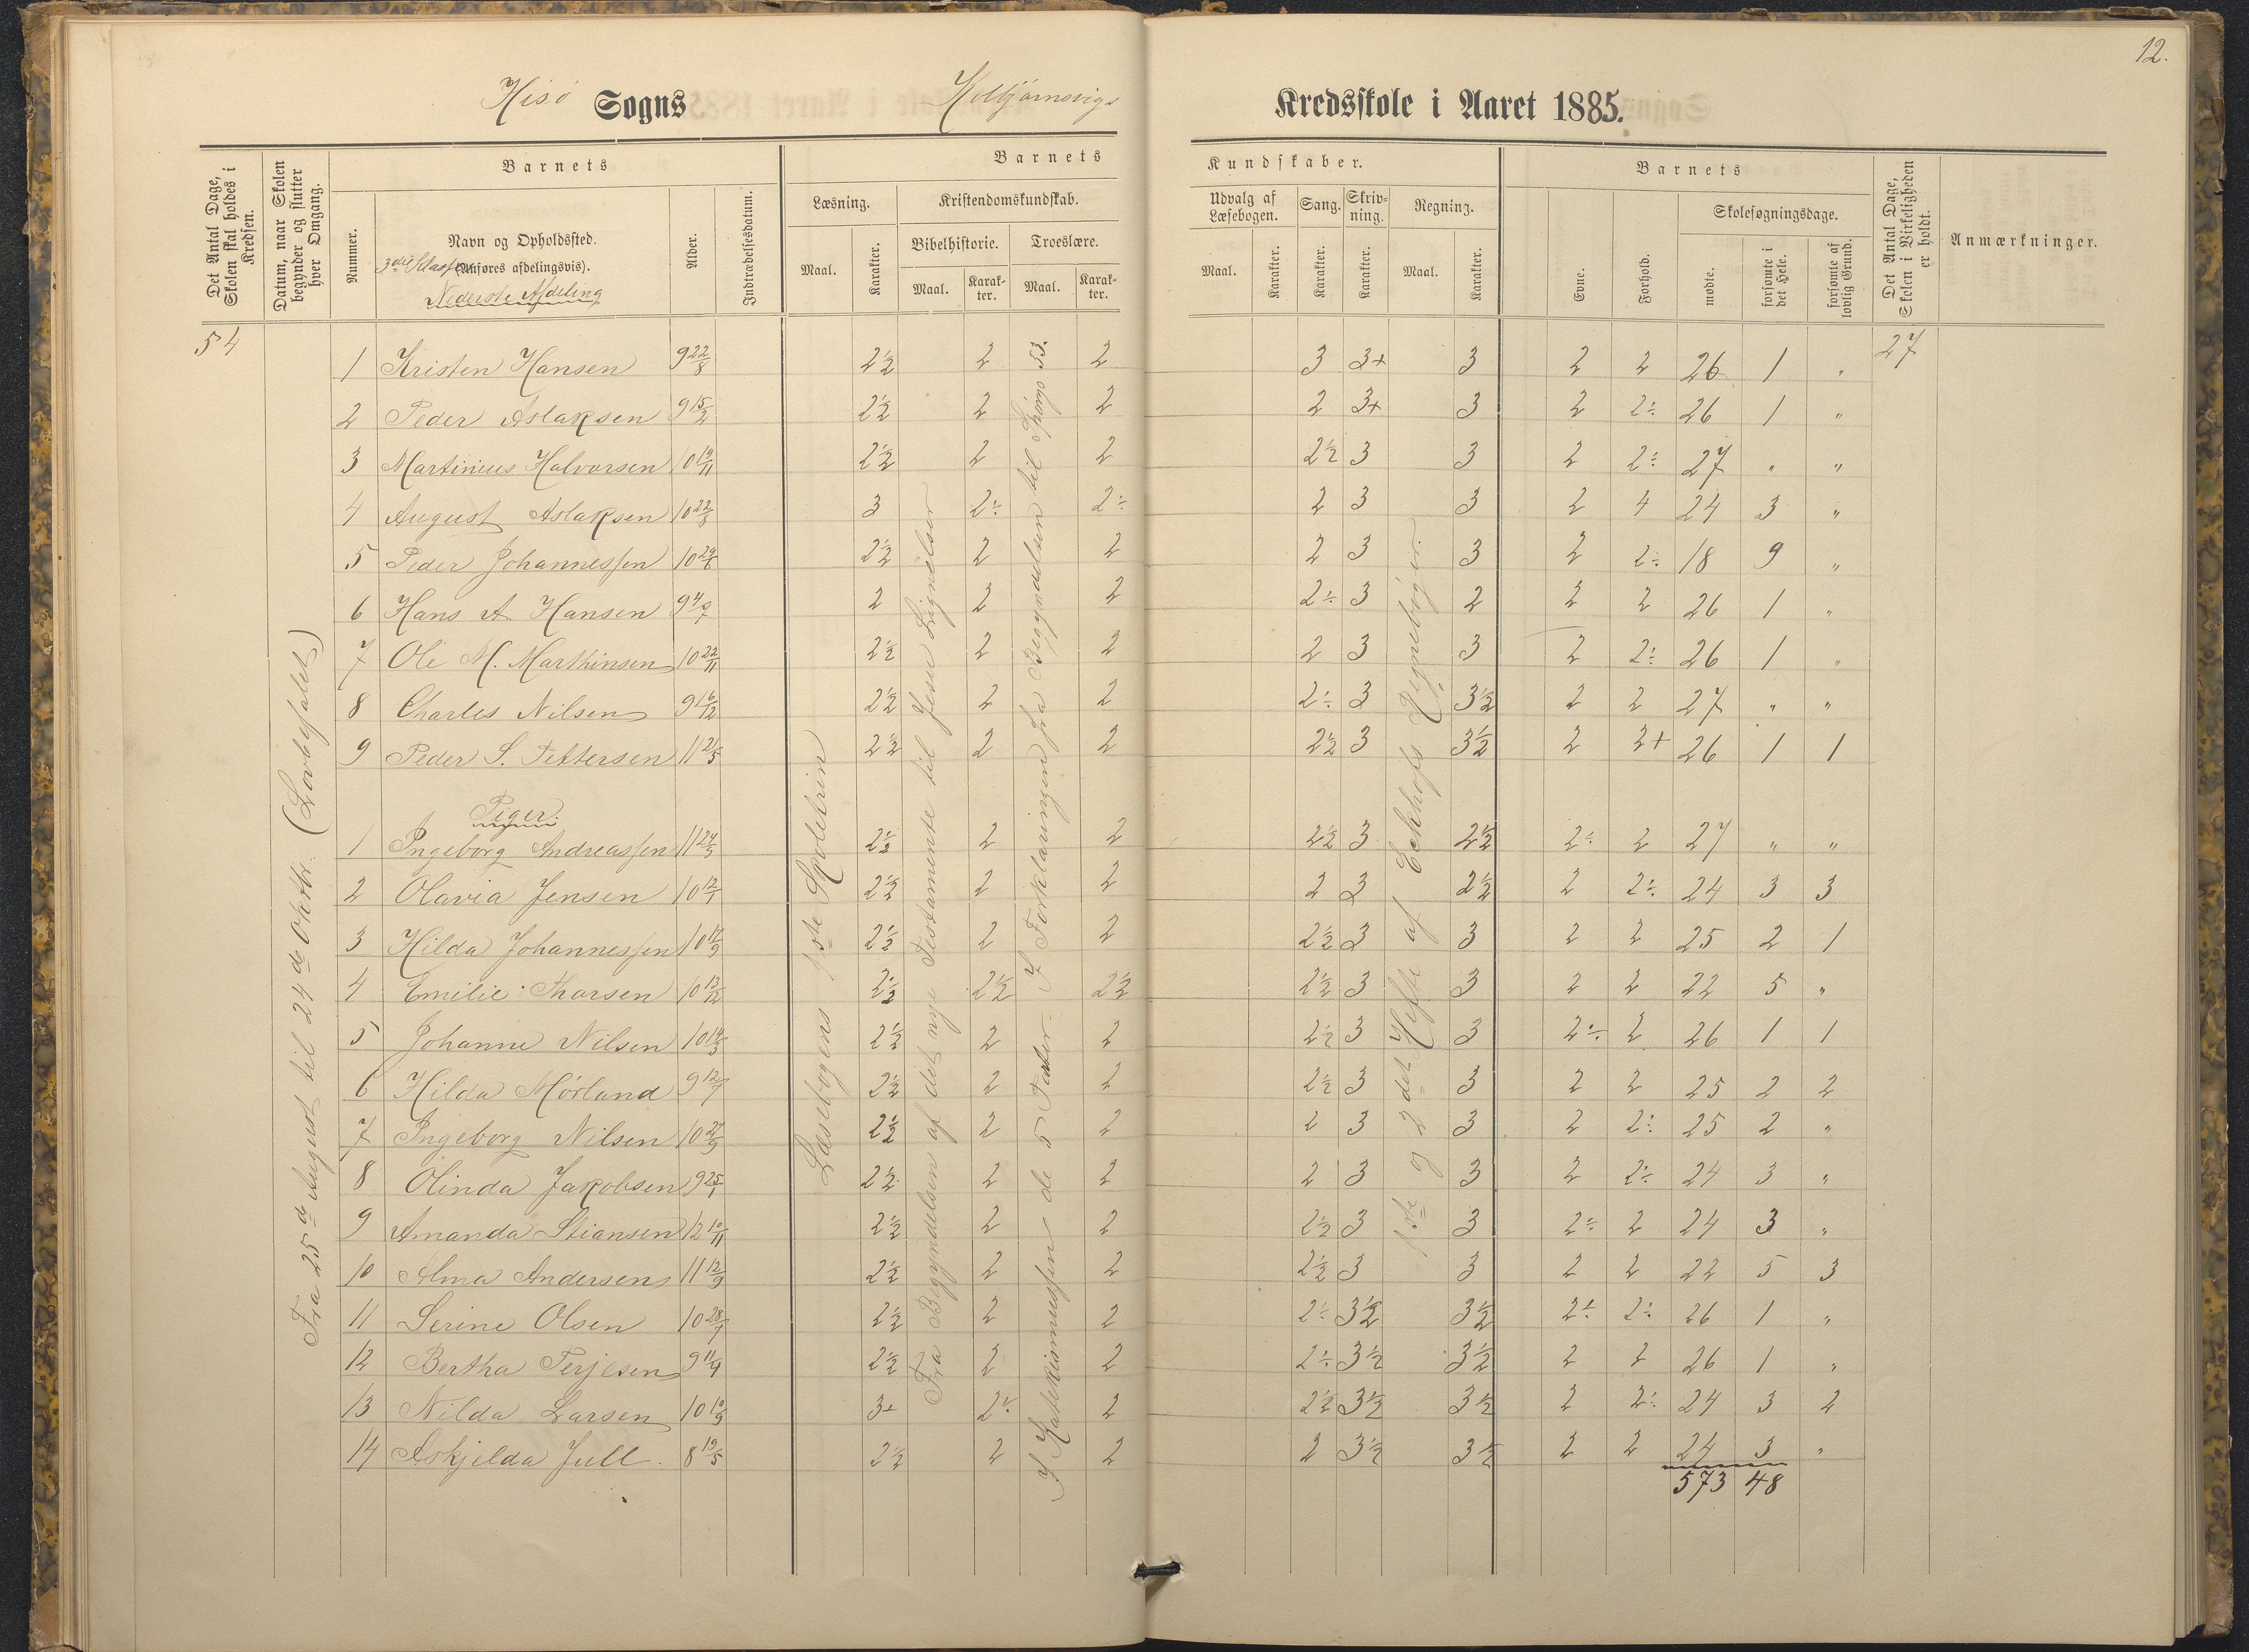 12.
Hisö Sogns Kolbjörnsvigs Kredsskole i Aaret 1885.
Det Antal Dage, Skolen skal holdes i Kredsen.
Datum, naar Skolen begynder og slutter hver Omgang.
Barnets
Nummer.
Navn og Opholdssted.
(Anføres afdelingsvis).
3die Klasse
Nederste Afdeling
Alder.
Indtrædelsesdatum.
Barnets Kundskaber.
Læsning.
Maal.
Karakter.
Kristendomskundskab.
Bibelhistorie.
Maal.
Karakter.
Troeslære.
Maal.
Karakter.
Udvalg af Læsebogen.
Maal.
Karakter.
Sang.
Karakter.
Skrivning.
Karakter.
Regning.
Maal.
Karakter.
Barnets
Evne.
Forhold.
Skolesøgningsdage.
mødte.
forsømte i det Hele.
forsømte af lovlig Grund.
Det Antal Dage, Skolen i Virkeligheden er holdt.
Anmærkninger.
54
27
Fra 25de August til 24de Oktbr. (Lovbefalet)
Læsebogens 1ste Skoletrin
Fra Begyndelsen af det nye Testamente til Jesu Lignelser
I Katekismussen de 5 Parter. I Forklaringen fra Begyndelsen til Spørgs 53.
1ste og 2det Hefte af Eckhofs Regnebøger.
1 Kristen Hansen 9 22/8 2½ 2 2 3 3+ 3 2 2 26 1 "
2 Peder Aslaksen 9 15/2 2½ 2 2 2 3+ 3 2 2÷ 26 1 "
3 Martinius Halvorsen 10 19/11 2½ 2 2 2½ 3 3 2 2÷ 27 " "
4 August Aslaksen 10 22/8 3 2÷ 2÷ 2 3 3 2 4 24 3 "
5 Peder Johannessen 10 29/6 2½ 2 2 2 3 3 2 2÷ 18 9 "
6 Hans A Hansen 9 2 2 2 2÷ 3 2 2 2 26 1 "
7 Ole M. Marthinsen 10 22/11 2½ 2 2 2 3 3 2 2÷ 26 1 "
8 Charles Nilsen 9 16/12 2½ 2 2 2÷ 3 3½ 2 2 27 " "
9 Peder S. Pettersen 11 21/5 2½ 2 2 2½ 3 3½ 2 3+ 26 1 1
Piger.
1 Ingeborg Andreassen 11 24/5 2½ 2 2 2½ 3 2½ 2÷ 2 27 " "
2 Olavia Jensen 10 12/1 2½ 2 2 2 3 2½ 2 2÷ 24 3 3
3 Hilda Johannessen 10 17/9 2½ 2 2 2½ 3 3 2 2 25 2 1
4 Emilie Tharsen 10 13/12 2½ 2½ 2½ 2½ 3 3 2 2 22 5 "
5 Johanne Nilsen 10 14/3 2½ 2 2 2½ 3 3 2÷ 2 26 1 1
6 Hilda Mörland 9 12/7 2½ 2 2 2½ 3 3 2 2 25 2 2
7 Ingeborg Nilsen 10 27/9 2½ 2 2 2 3 3 2 2÷ 25 2 "
8 Olinda Jakobsen 9 25/1 2½ 2 2 2 3 3 2 2÷ 24 3 "
9 Amanda Stiansen 12 10/11 2½ 2 2 2½ 3 3 2÷ 2 24 3 "
10 Alma Andersen 11 12/9 2½ 2 2 2½ 3 3 2 2 22 5 3
11 Serine Olsen 10 28/7 2½ 2 2 2÷ 3½ 3½ 2÷ 2÷ 26 1 "
12 Bertha Terjesen 9 11/9 2½ 2 2 2÷ 3½ 3½ 2 2 26 1 "
13 Nilda Larsen 10 10/9 3+ 2÷ 2 2½ 3½ 3½ 2 2÷ 24 3 2
14 Askjelda Jull. 8 19/5 2½ 2 2 2 3½ 3½ 2 2 24 3 "
573 48